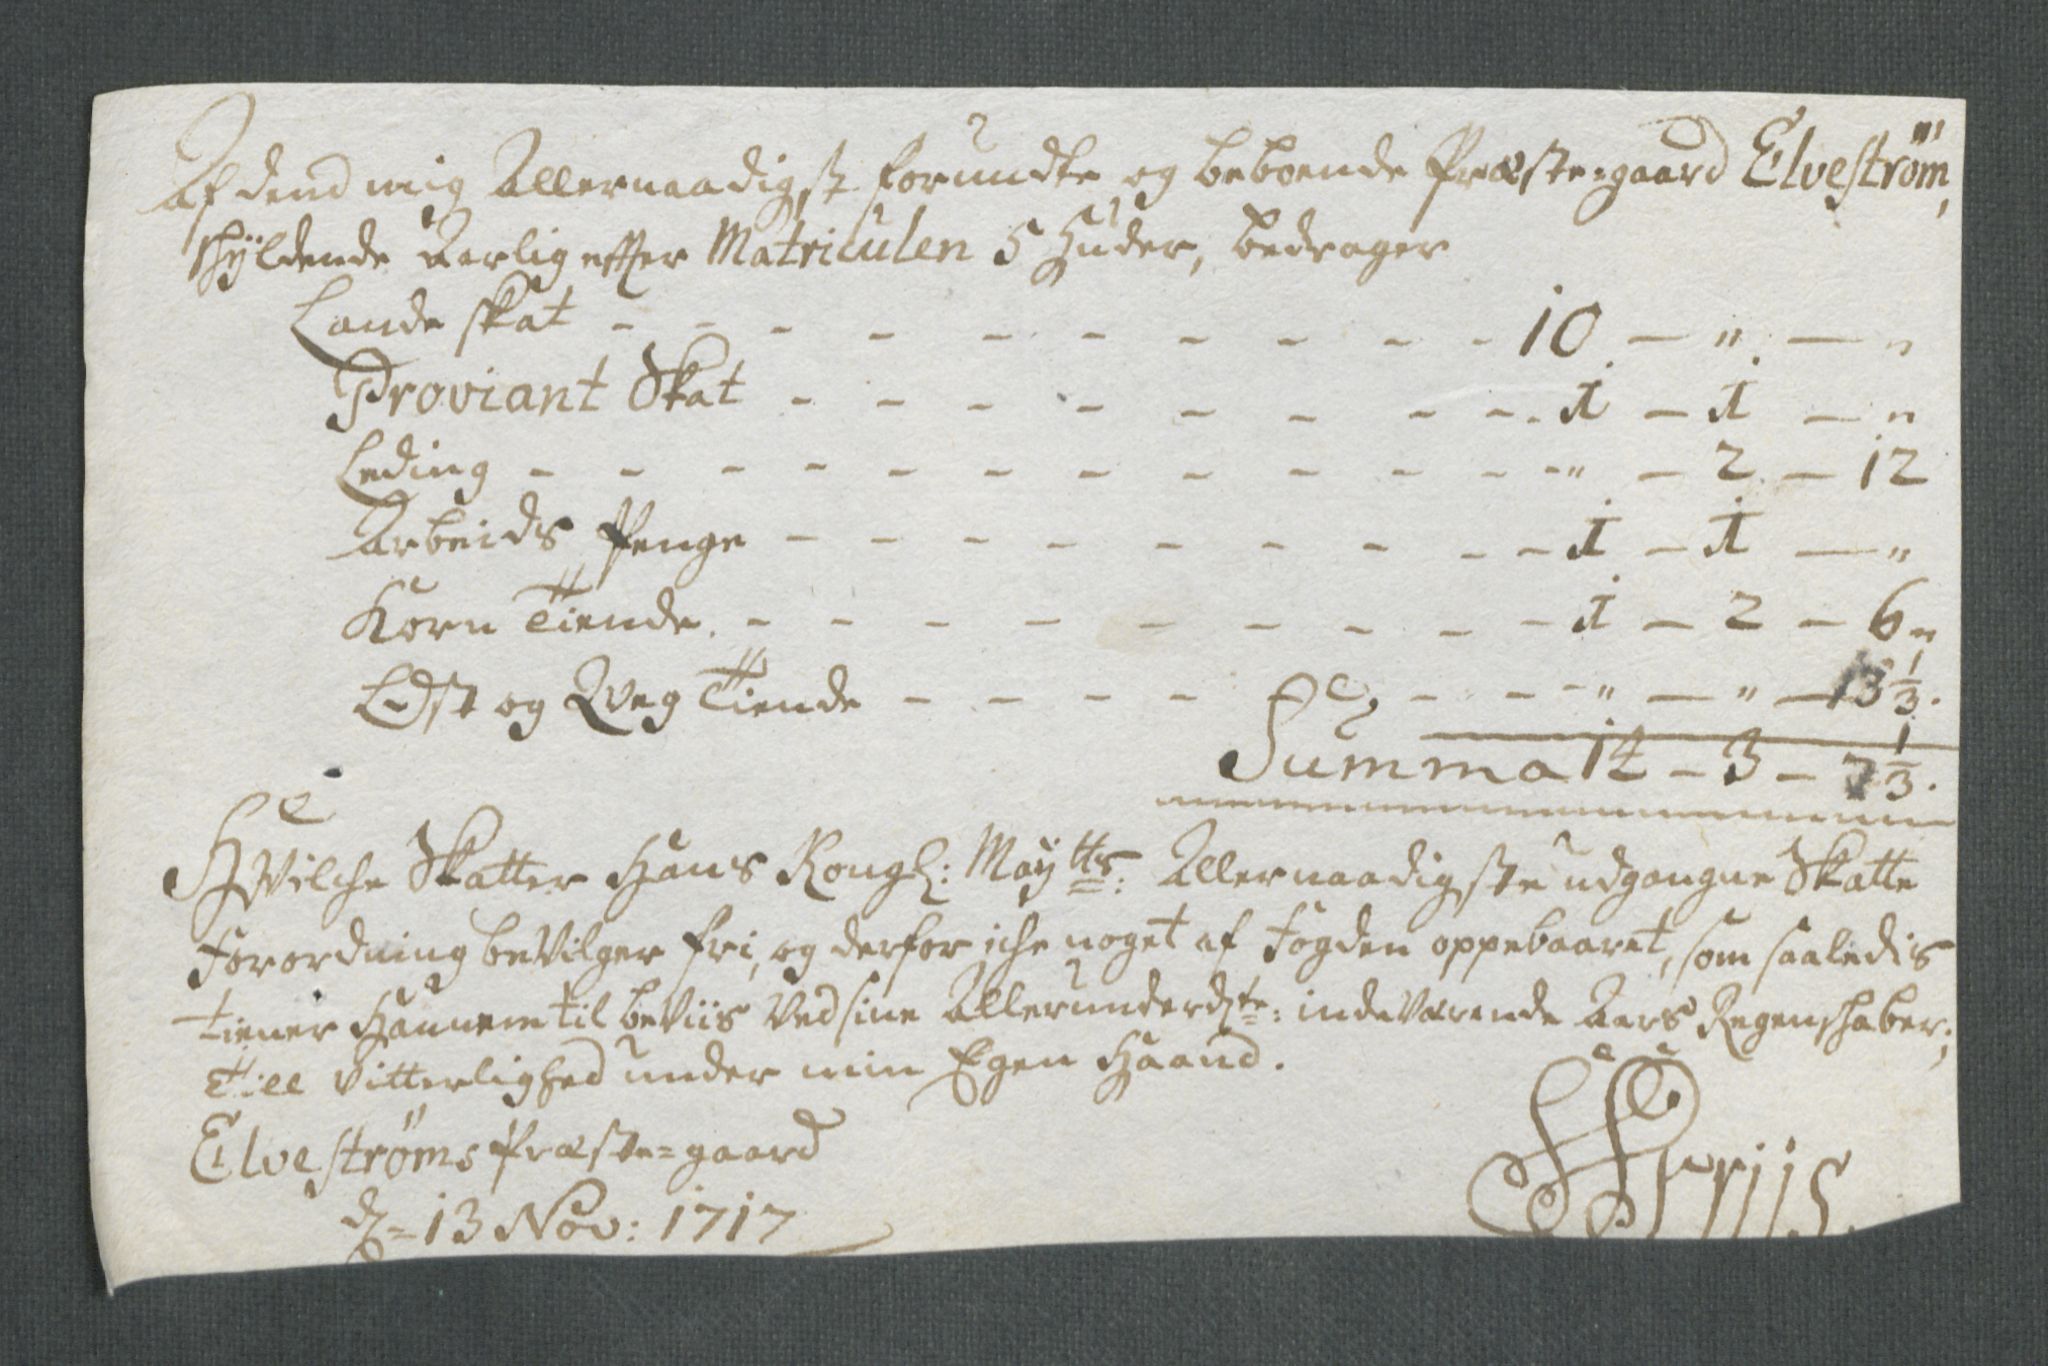 Af dend mig Allernaadigst forundte og beboende Præste-gaard Elveström,
skÿldende Aarlig effter Matriculen 5 Huder, bedrager
Lande skat - - - - - - - - - - 10 - " - "
Proviant Skat - - - - - - - - 1 - 1 - "
Leding - - - - - - - - - - - " - 2 - 12
Arbeids Penge - - - - - - - - - 1 - 1 - "
Korn Tiende - - - - - - - - - 1 - 2 - 6 "
Ost og Qveg Tiende - - - - - - - " - " - 13 1/3.
Summa 14 - 3 - 7 1/3.
Hvilche Skatter Hans Kongl: Maÿtts: Allernaadigste udgangne Skatte
Forordning beVilger fri, og derfor iche noget af Fogden oppebaaret, som saaledis
tiener Hannem til beViis Ved sine Allerunderdte: indeVærende Aars Regenskaber;
Till Vitterlighed under min Egen Haand.
Elveströms Præste-gaard
d= 13 Nov: 1717
Friis.